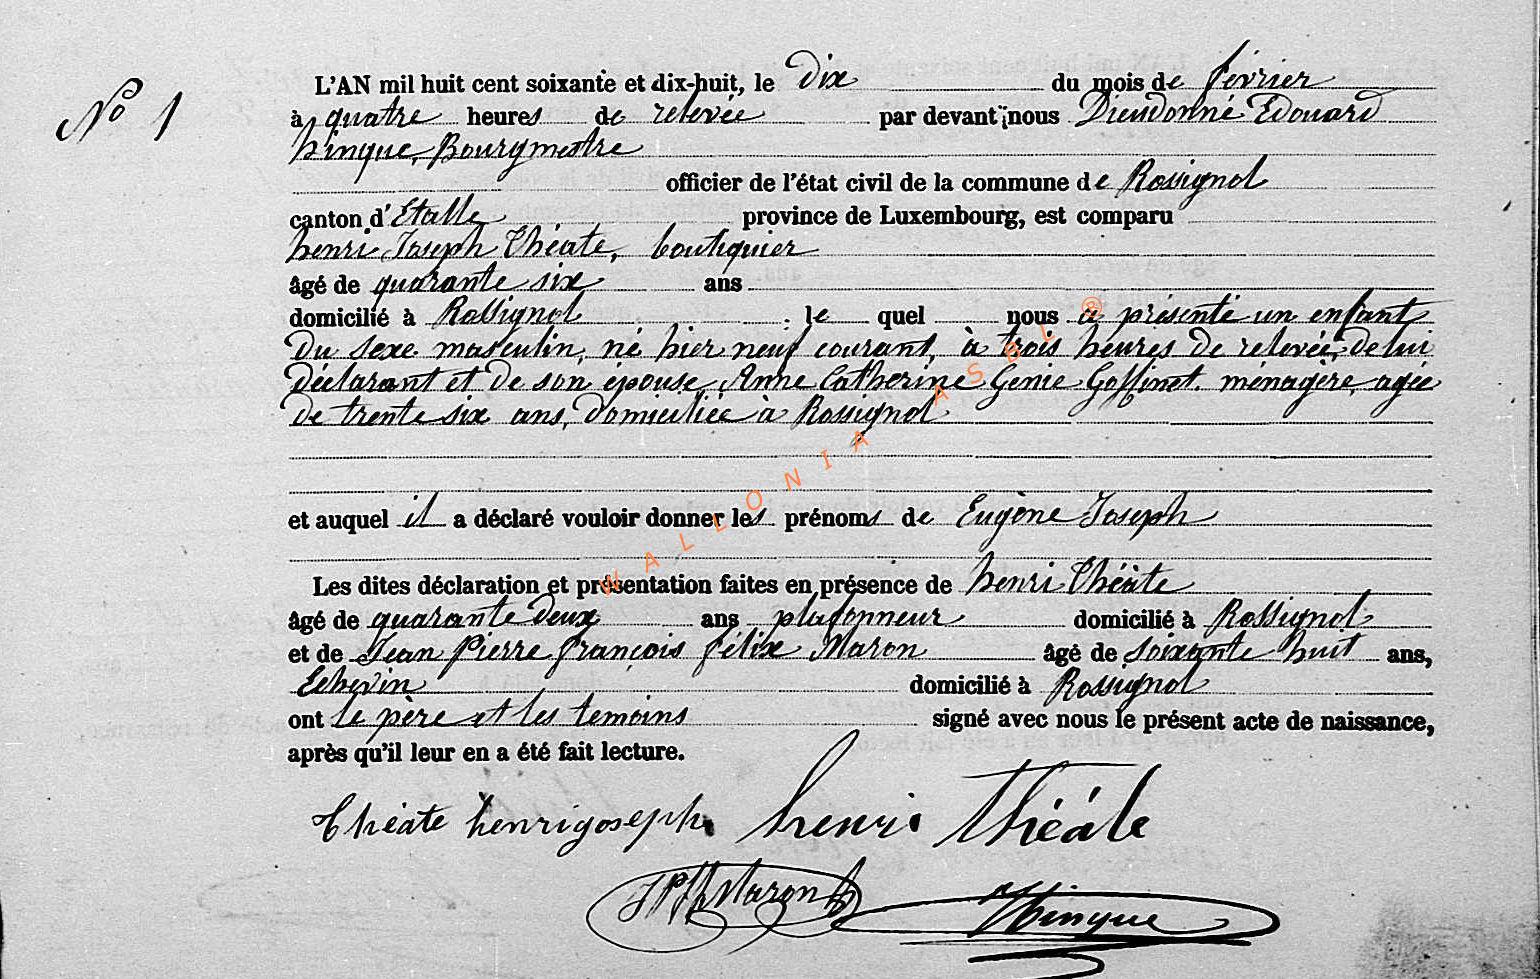 No 1
L'AN mil huit cent soixante et dix-huit, le dix du mois de février
à quatre heures de relevée par devant nous Dieudonné Edouard
hinque, Bourgmestre
officier de l'état civil de la commune de Rossignol
canton d'Etalle province de Luxembourg, est comparu
henri Joseph Théate, boutiquier
âgé de quarante six ans
domicilié à Rossignol ; le quel nous a présenté un enfant
du sexe masculin, né hier neuf courant, à trois heures de relevée, de lui
déclarant et de son épouse, Anne Catherine Génie Goffinet ménagère, agée
de trente six ans, domiciliée à Rossignol
et auquel il a déclaré vouloir donner les prénoms de Eugène Joseph
Les dites déclaration et présentation faites en présence de henri Théate
âgé de quarante deux ans plafonneur domicilié à Rossignol
et de Jean Pierre françois félix Maron âgé de soixante huit ans,
Echevin domicilié à Rossignol
ont le père et les temoins signé avec nous le présent acte de naissance,
après qu'il leur en a été fait lecture.
Théate henri joseph henri Théate
JPff Maron hinque
WALLONIA ASBL ®